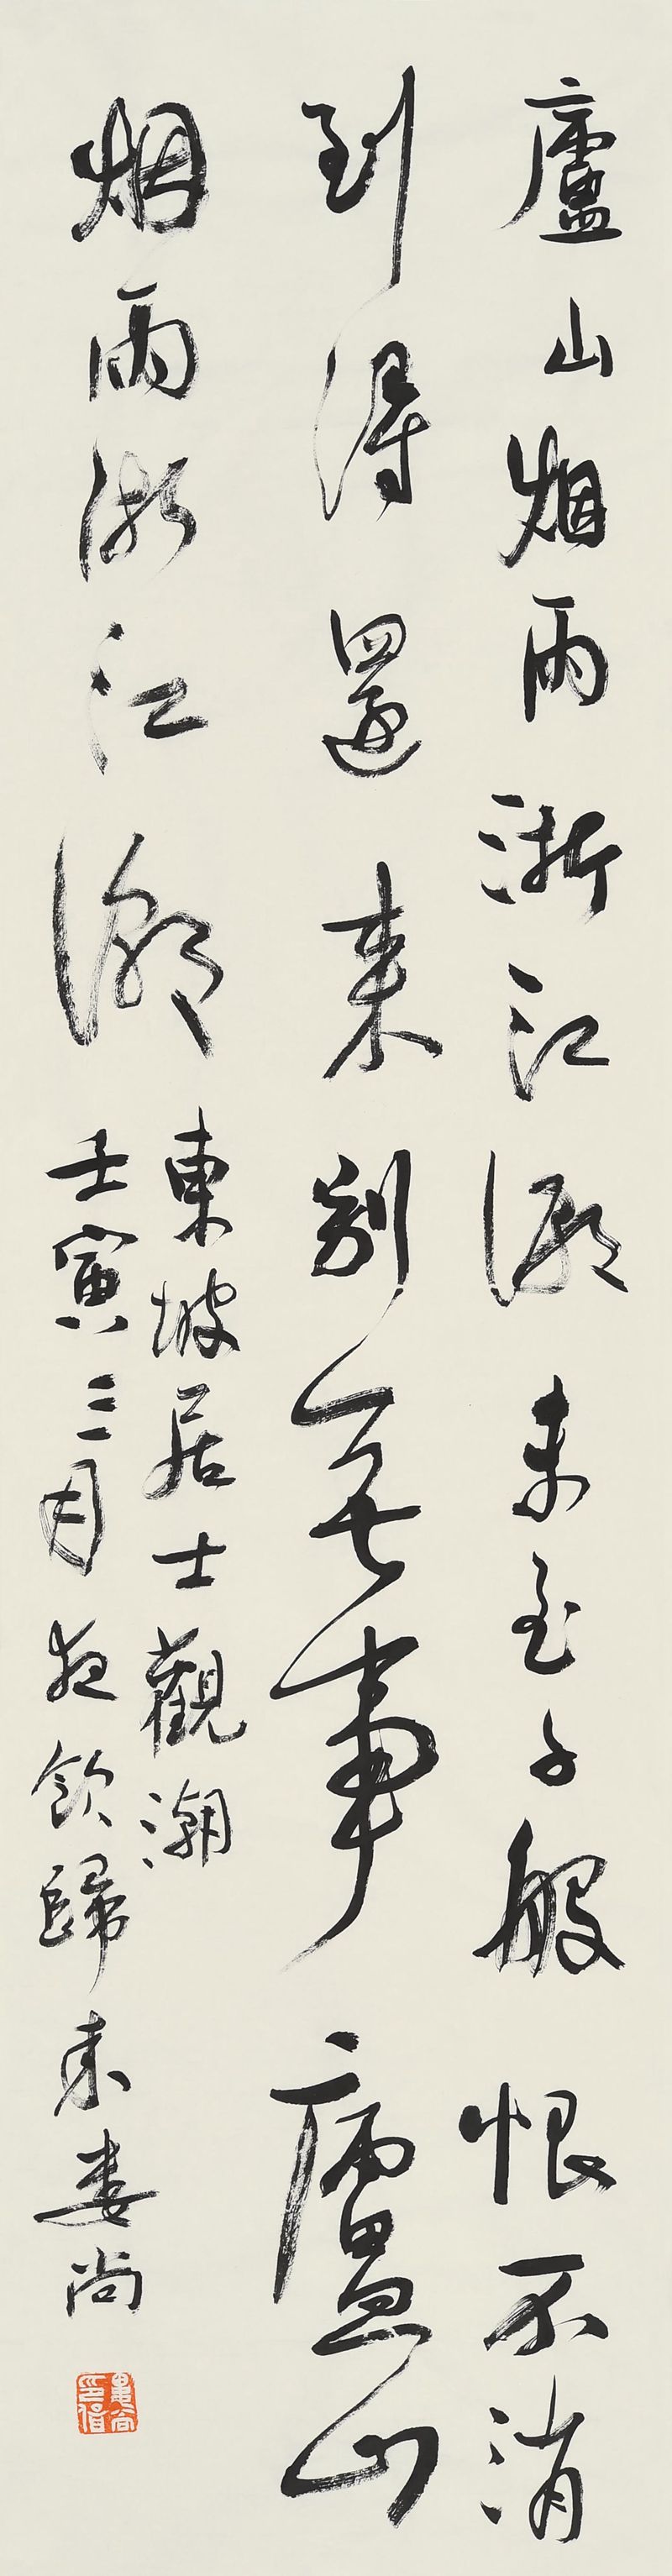 廬山烟雨浙江潮未至千般恨不消
到得還来别無事廬山
烟雨浙江潮
東坡居士觀潮
壬寅三月夜飲歸来婁尚
婁尚印信